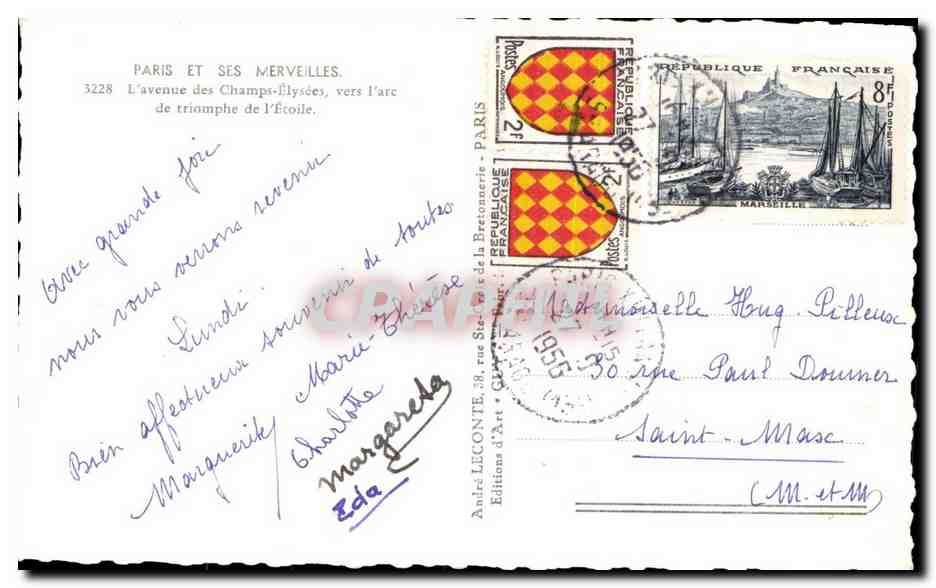 PARIS ET SES MERVEILLES.
3228 L'avenue des Champs-Élysées, vers l'arc
de triomphe de l'Étoile.
Avec grande joie
nous vous verrons revenir
Lundi.
Bien affectueux souvenir de toutes
Marguerite Marie-Thérèse
Charlotte
Margareta
Eda
André LECONTE, 38, rue Ste-Croix de la Bretonnerie - PARIS
Editions d'Art
Postes
RÉPUBLIQUE
FRANÇAISE
2f
ANGOUMOIS
RÉPUBLIQUE
FRANÇAISE
2f
Postes
ANGOUMOIS
RÉPUBLIQUE FRANÇAISE
8F
POSTES
MARSEILLE
1956
1956
CARTORUM
Mademoiselle Hug-Pilleux
30 rue Paul Doumer
Saint-Max
(M. et M)